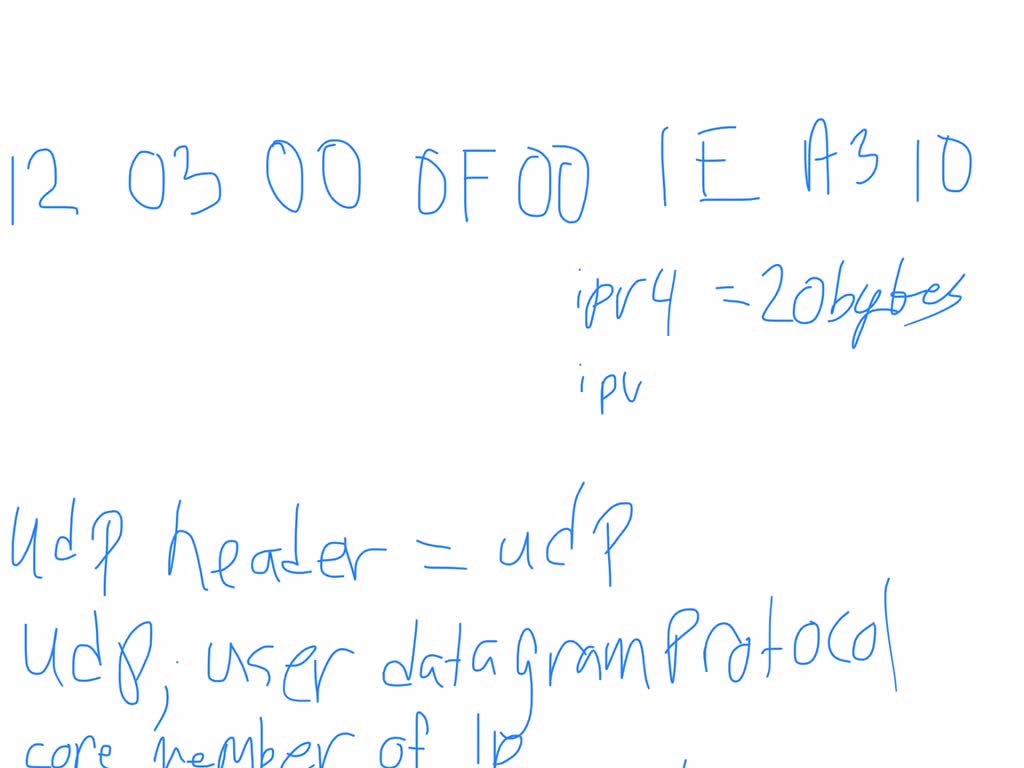 12 03 00 0F 00 1E A3 10
ipv4 = 20bytes
ipv
Udp header = udp
Udp; user datagram Protocol
core member of IP